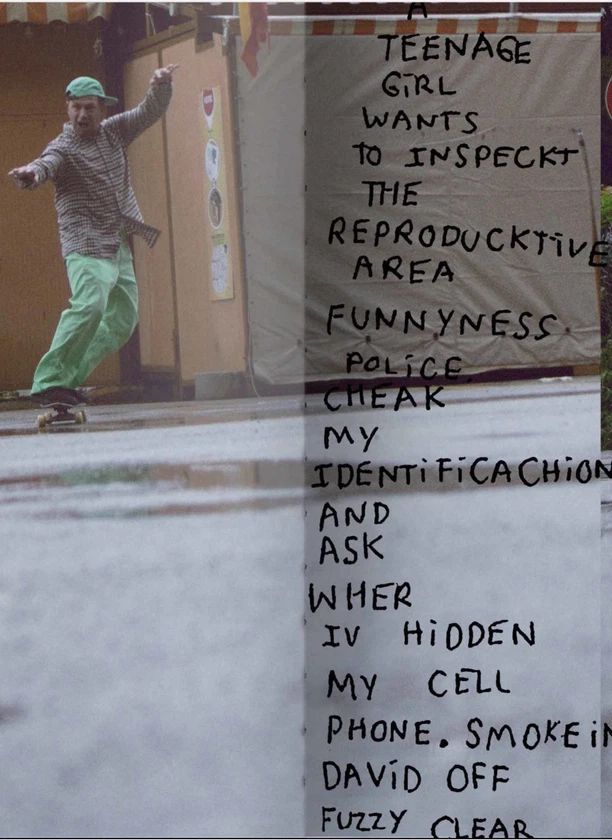 A
TEENAGE
GiRL
WANTS
TO INSPECKT
THE
REPRODUCKTiVE
AREA
FUNNYNESS
POLiCE.
CHEAK
MY
IDENTiFiCACHiON
AND
ASK
WHER
IV HiDDEN
MY CELL
PHONE. SMOKEiN
DAViD OFF
FUZZY CLEAR